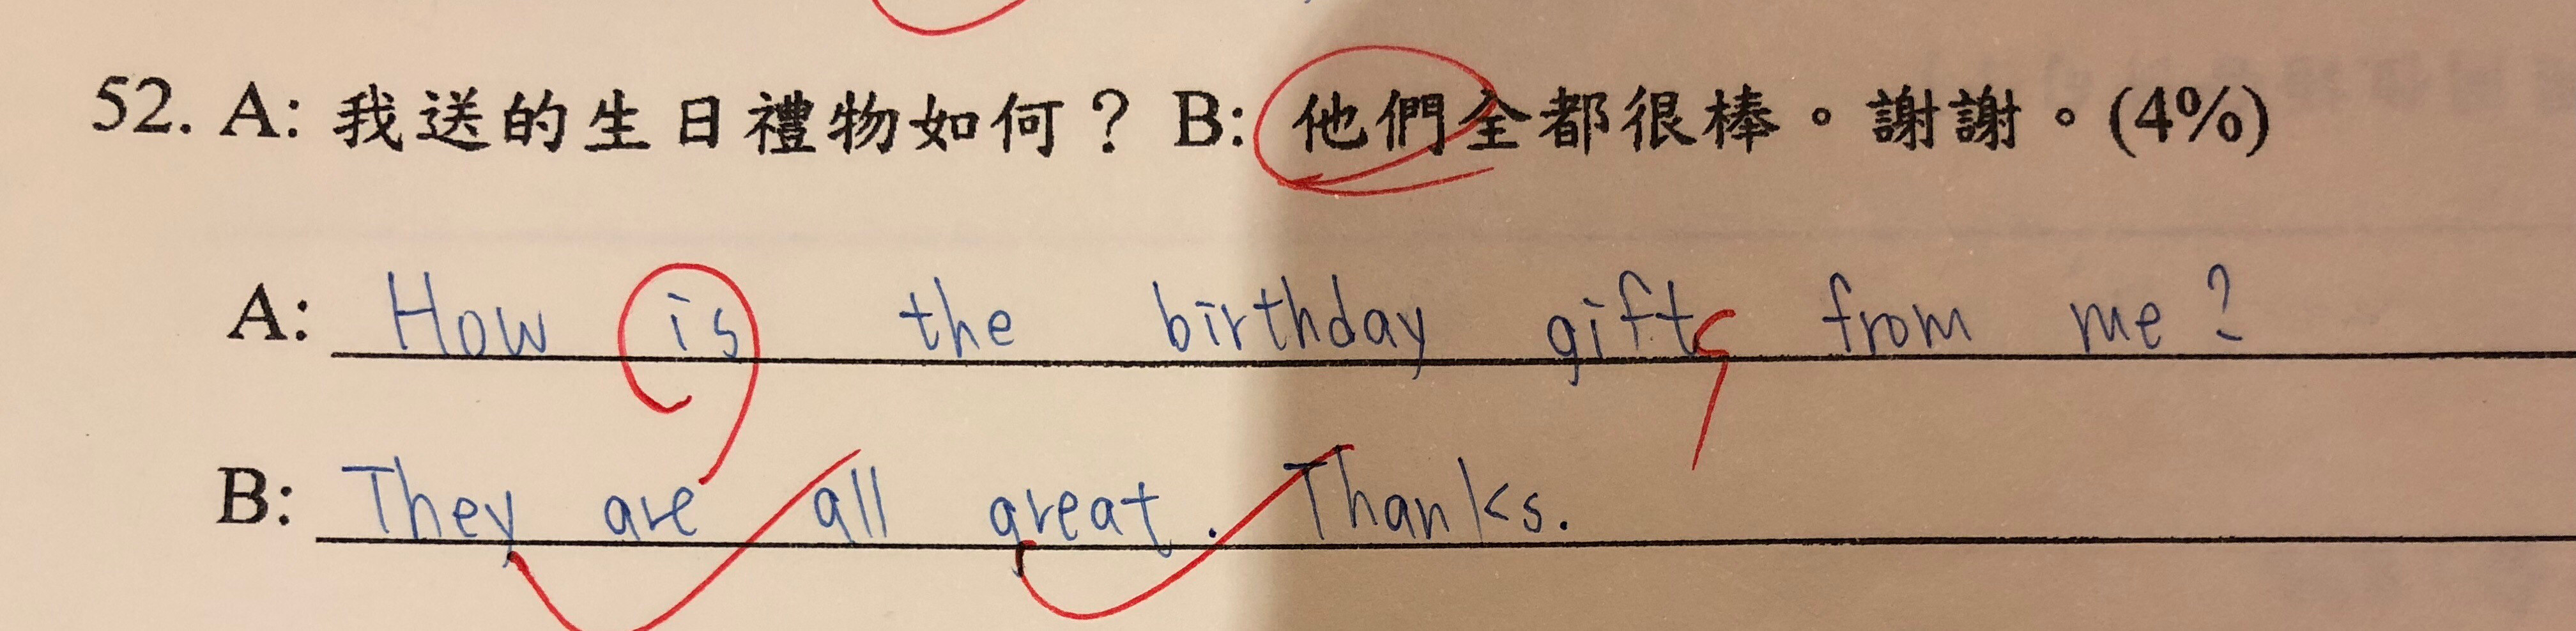 52. A: 我送的生日禮物如何？ B: 他們全都很棒。謝謝。(4%)
A: How is the birthday gifts from me?
B: They are all great. Thanks.